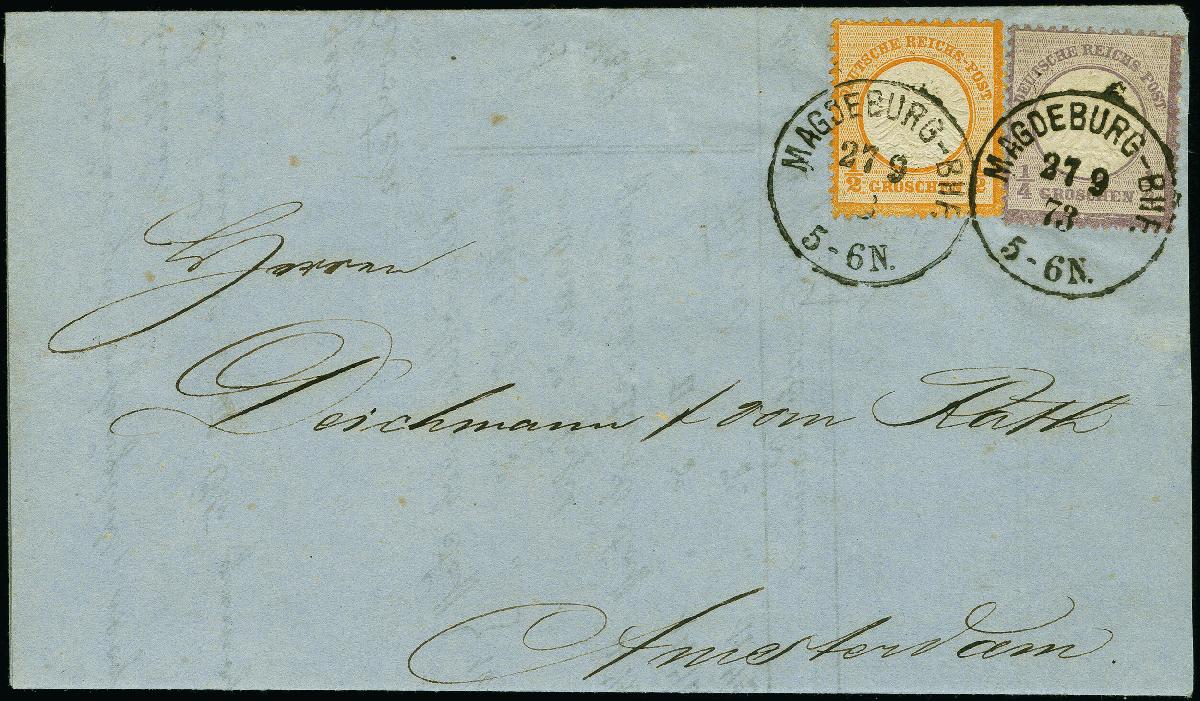 DEUTSCHE REICHS-POST
1/2 GROSCHEN 1/2
DEUTSCHE REICHS-POST
1/4 GROSCHEN
MAGDEBURG-BHF.
27 9
5-6N.
MAGDEBURG-BHF.
27 9
73
5-6N.
Herren
Deichmann & vom Rath
Amsterdam